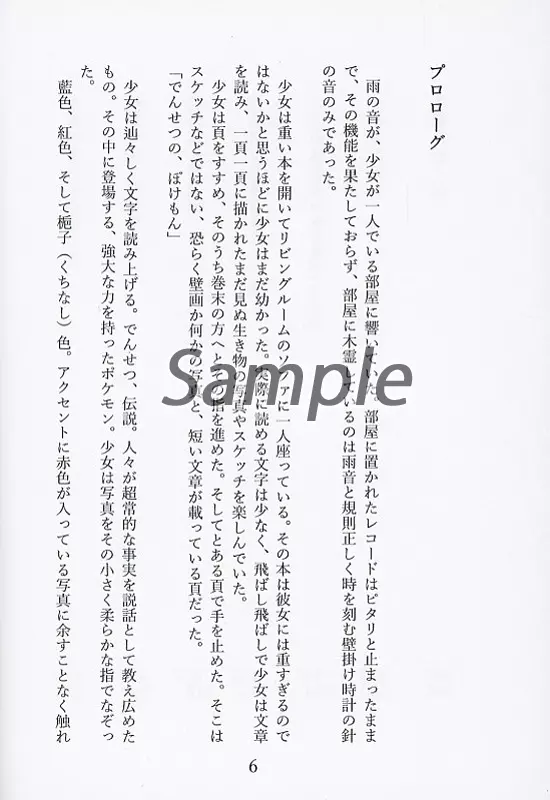 プロローグ
雨の音が、少女が一人でいる部屋に響いていた。部屋に置かれたレコードはピタリと止まったまま
で、その機能を果たしておらず、部屋に木霊しているのは雨音と規則正しく時を刻む壁掛け時計の針
の音のみであった。
少女は重い本を開いてリビングルームのソファに一人座っている。その本は彼女には重すぎるので
はないかと思うほどに少女はまだ幼かった。実際に読める文字は少なく、飛ばし飛ばしで少女は文章
を読み、一頁一頁に描かれたまだ見ぬ生き物の写真やスケッチを楽しんでいた。
少女は頁をすすめ、そのうち巻末の方へとその指を進めた。そしてとある頁で手を止めた。そこは
スケッチなどではない、恐らく壁画か何かの写真と、短い文章が載っている頁だった。
「でんせつの、ぽけもん」
少女は辿々しく文字を読み上げる。でんせつ、伝説。人々が超常的な事実を説話として教え広めた
もの。その中に登場する、強大な力を持ったポケモン。少女は写真をその小さく柔らかな指でなぞっ
た。
藍色、紅色、そして梔子（くちなし）色。アクセントに赤色が入っている写真に余すことなく触れ
Sample
6